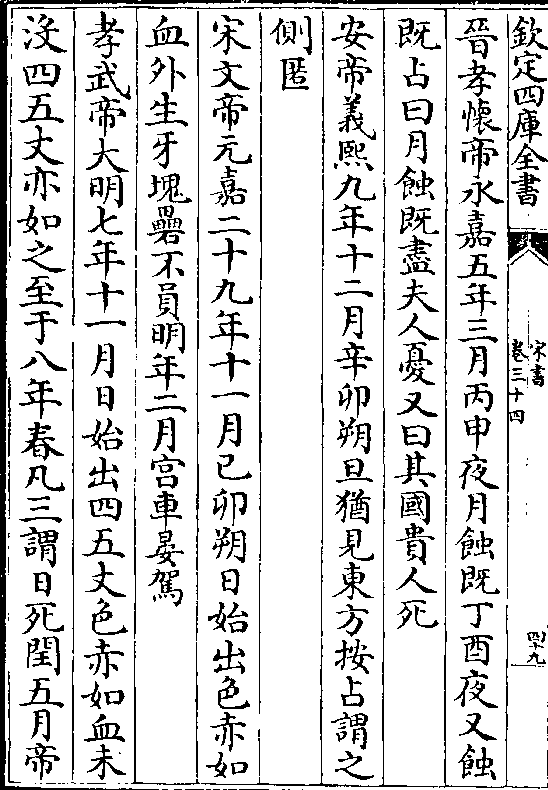 欽定四庫全書
宋書
卷三十四
四十九
晉孝懷帝永嘉五年三月丙申夜月蝕既丁酉夜又蝕
既占曰月蝕既盡夫人憂又曰其國貴人死
安帝義熙九年十二月辛卯朔旦猶見東方按占謂之
側匿
宋文帝元嘉二十九年十一月己卯朔日始出色赤如
血外生牙塊礨不員明年二月宫車晏駕
孝武帝大明七年十一月日始出四五丈色赤如血未
没四五丈亦如之至于八年春凡三謂日死閏五月帝